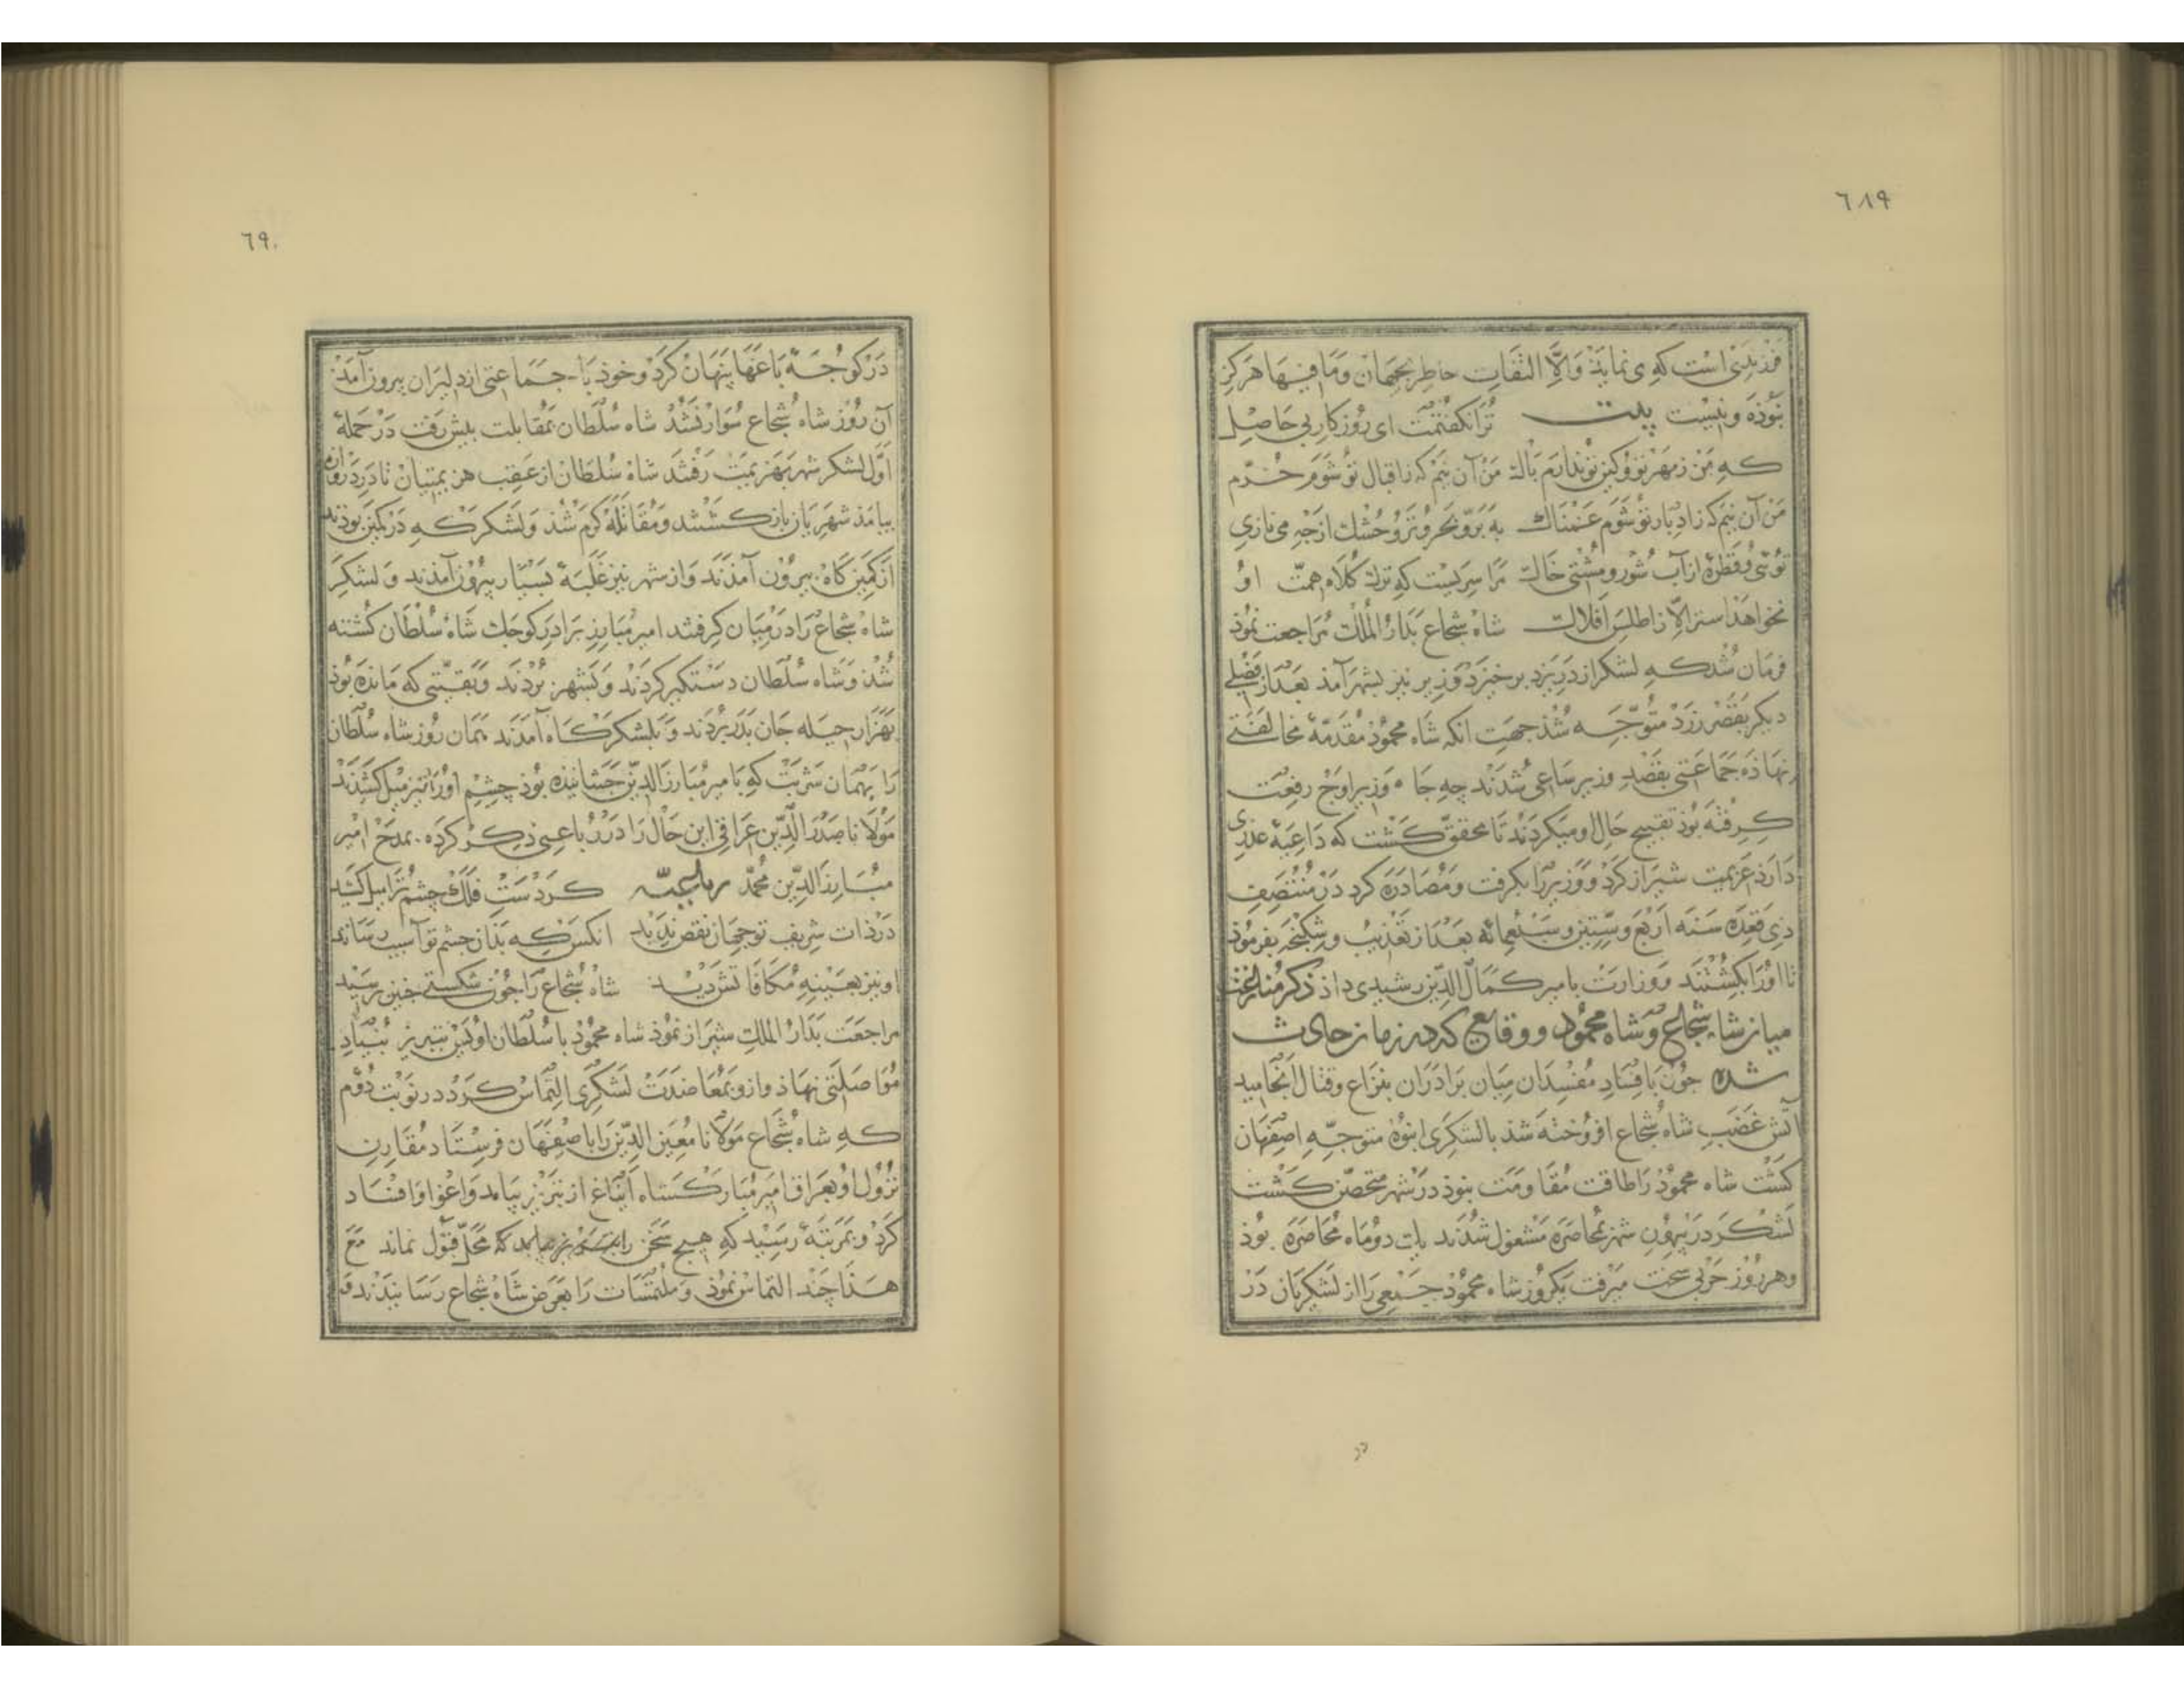 ٦٨٩
فرزندیی است که می نماید والا التفات خاطر بجهان وما فیها هرکز
نبوده ونیست بیت ترا نکفتمت ای روزکار بی حاصل
که من ز مهر تو وکین تو ندارم باک من آن نیم که ز اقبال تو شوم خرم
من آن نیم که ز ادبار تو شوم غمناک به برّ و بحر و تر و خشک از چه می نازی
توئی و قطرهٔ از آب شور و مشتی خاک مرا سریست که ترک کلاه همّت او
نخواهد استر الّا ز اطلس افلاک شاه شجاع بدار الملک مراجعت نمود
فرمان شد که لشکر از در یزد برخیزد وزیر نیز بشهر آمد بعد از فصلی
دیکر بقصر زرد متوجّه شد جهت انکه شاه محمود مقدمهٔ مخالفتی
نهاده جماعتی بقصد وزیر ساعی شدند چه جاه وزیر اوج رفعت
کرفته بود تقبیح حال او میکردند تا محقق کشت که داعیهٔ غدری
دارد عزیمت شیراز کرد و وزیر را بکرفت ومصادره کرد در منتصف
ذی قعده سنه اربع وستین وسبعمائه بعد از تعذیب وشکنجه بفرمود
تا اورا بکشتند و وزارت بامیر کمال الدین رشیدی داد ذکر منازعت
میان شاه شجاع وشاه محمود و وقایع که در زمان حادث
شده جون بافساد مفسدان میان برادران بنزاع وقتال انجامید
آتش غضب شاه شجاع افروخته شد با لشکری انبوه متوجّه اصفهان
کشت شاه محمود را طاقت مقاومت نبود در شهر متحصّن کشت
لشکر در بیرون شهر بمحاصره مشغول شدند یک دو ماه محاصره بود
وهر روز حربی سخت میرفت یکروز شاه محمود جمعی را از لشکریان در
در
٦٩٠
در کوجهٔ باغها پنهان کرد وخود با جماعتی از دلیران بیرون آمد
آن روز شاه شجاع سوار نشد شاه سلطان بمقابلت بیش رفت در حملهٔ
اول لشکر شهر بهزیمت رفتند شاه سلطان از عقب هزیمتیان تا در دروازه
بیامد شهریان باز کشتند ومقاتله کرم شد ولشکر که در کمین بودند
از کمین کاه بیرون آمدند واز شهر نیز غلبهٔ بسیار بیرون آمدند ولشکر
شاه شجاع را در میان کرفتند امیر مبارز برادر کوجک شاه سلطان کشته
شد وشاه سلطان دستکیر کردند وبشهر بردند وبقیّتی که مانده بود
بهزار حیله جان بدر بردند وبلشکرکاه آمدند همان روز شاه سلطان
را بهمان شربت که بامیر مبارز الدین جشانیده بود چشم اورا نیز میل کشیدند
مولانا صدر الدین عراقی این حال را در رباعی ذکر کرده بمدح امیر
مبارز الدین محمد رباعیه کرد دست فلک چشم ترا میل کشید
در ذات شریف تو جهان نقص ندید انکس که بدان جشم تو آسیب رسانید
او نیز بعینه مکافاتش دید شاه شجاع را جون شکستی جنین رسید
مراجعت بدار الملک شیراز نمود شاه محمود با سلطان اویس تبریز بنیاد
مواصلتی نهاد وازو بمعاضدت لشکری التماس کرد در نوبت دوّم
که شاه شجاع مولانا معین الدین را باصفهان فرستاد مقارن
نزول او بعراق امیر مبارکشاه ایناغ از تبریز بیامد واغوا وافساد
کرد وبمرتبهٔ رسید که هیچ سخن را محلّ قبول نماند مع
هذا چند التماس نمود وملتمسات را بعرض شاه شجاع رسانیدند